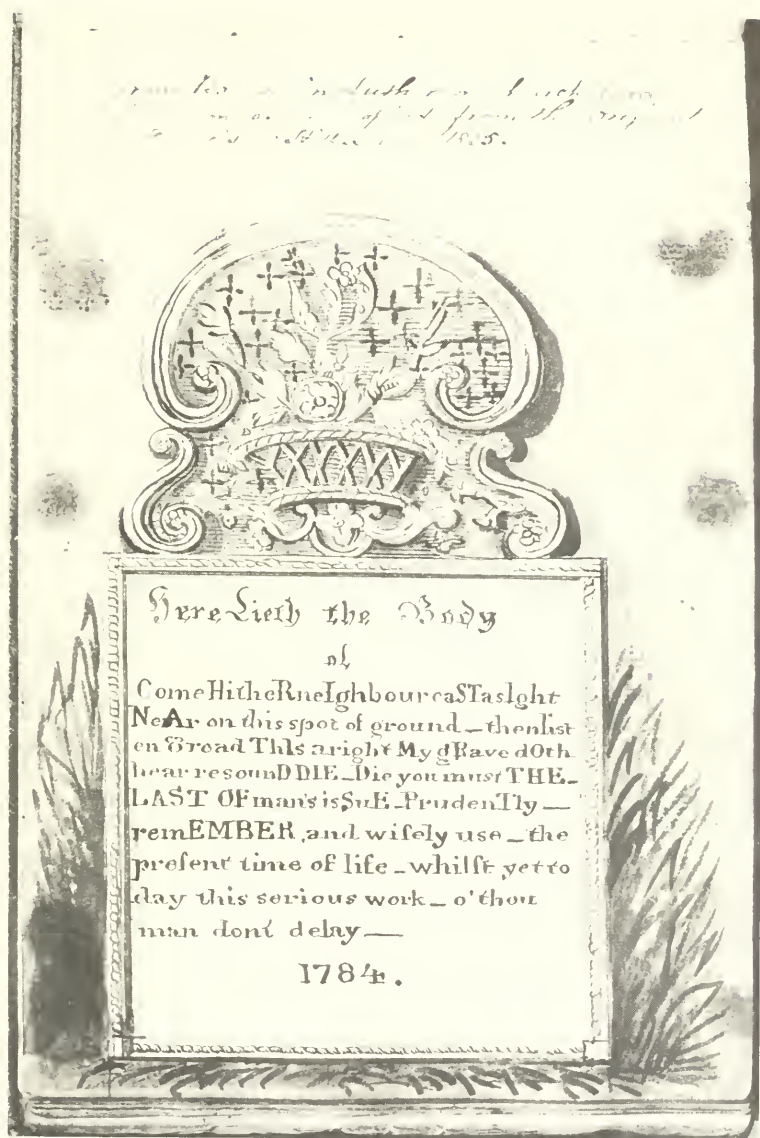 from the
1835.
Here Lieth the Body
of
Come HitheR neIghbour caST a sIght
NeAr on this spot of ground _ then list
en & road ThIs aright My gRave dOth
hear resounD DIE _ Die you must THE _
LAST OF man's is SuE _ PrudenTly _
remEMBER, and wiſely uſe _ the
preſent time of life _ whilſt yet to
day this serious work _ o' thou
man dont delay _
1784.